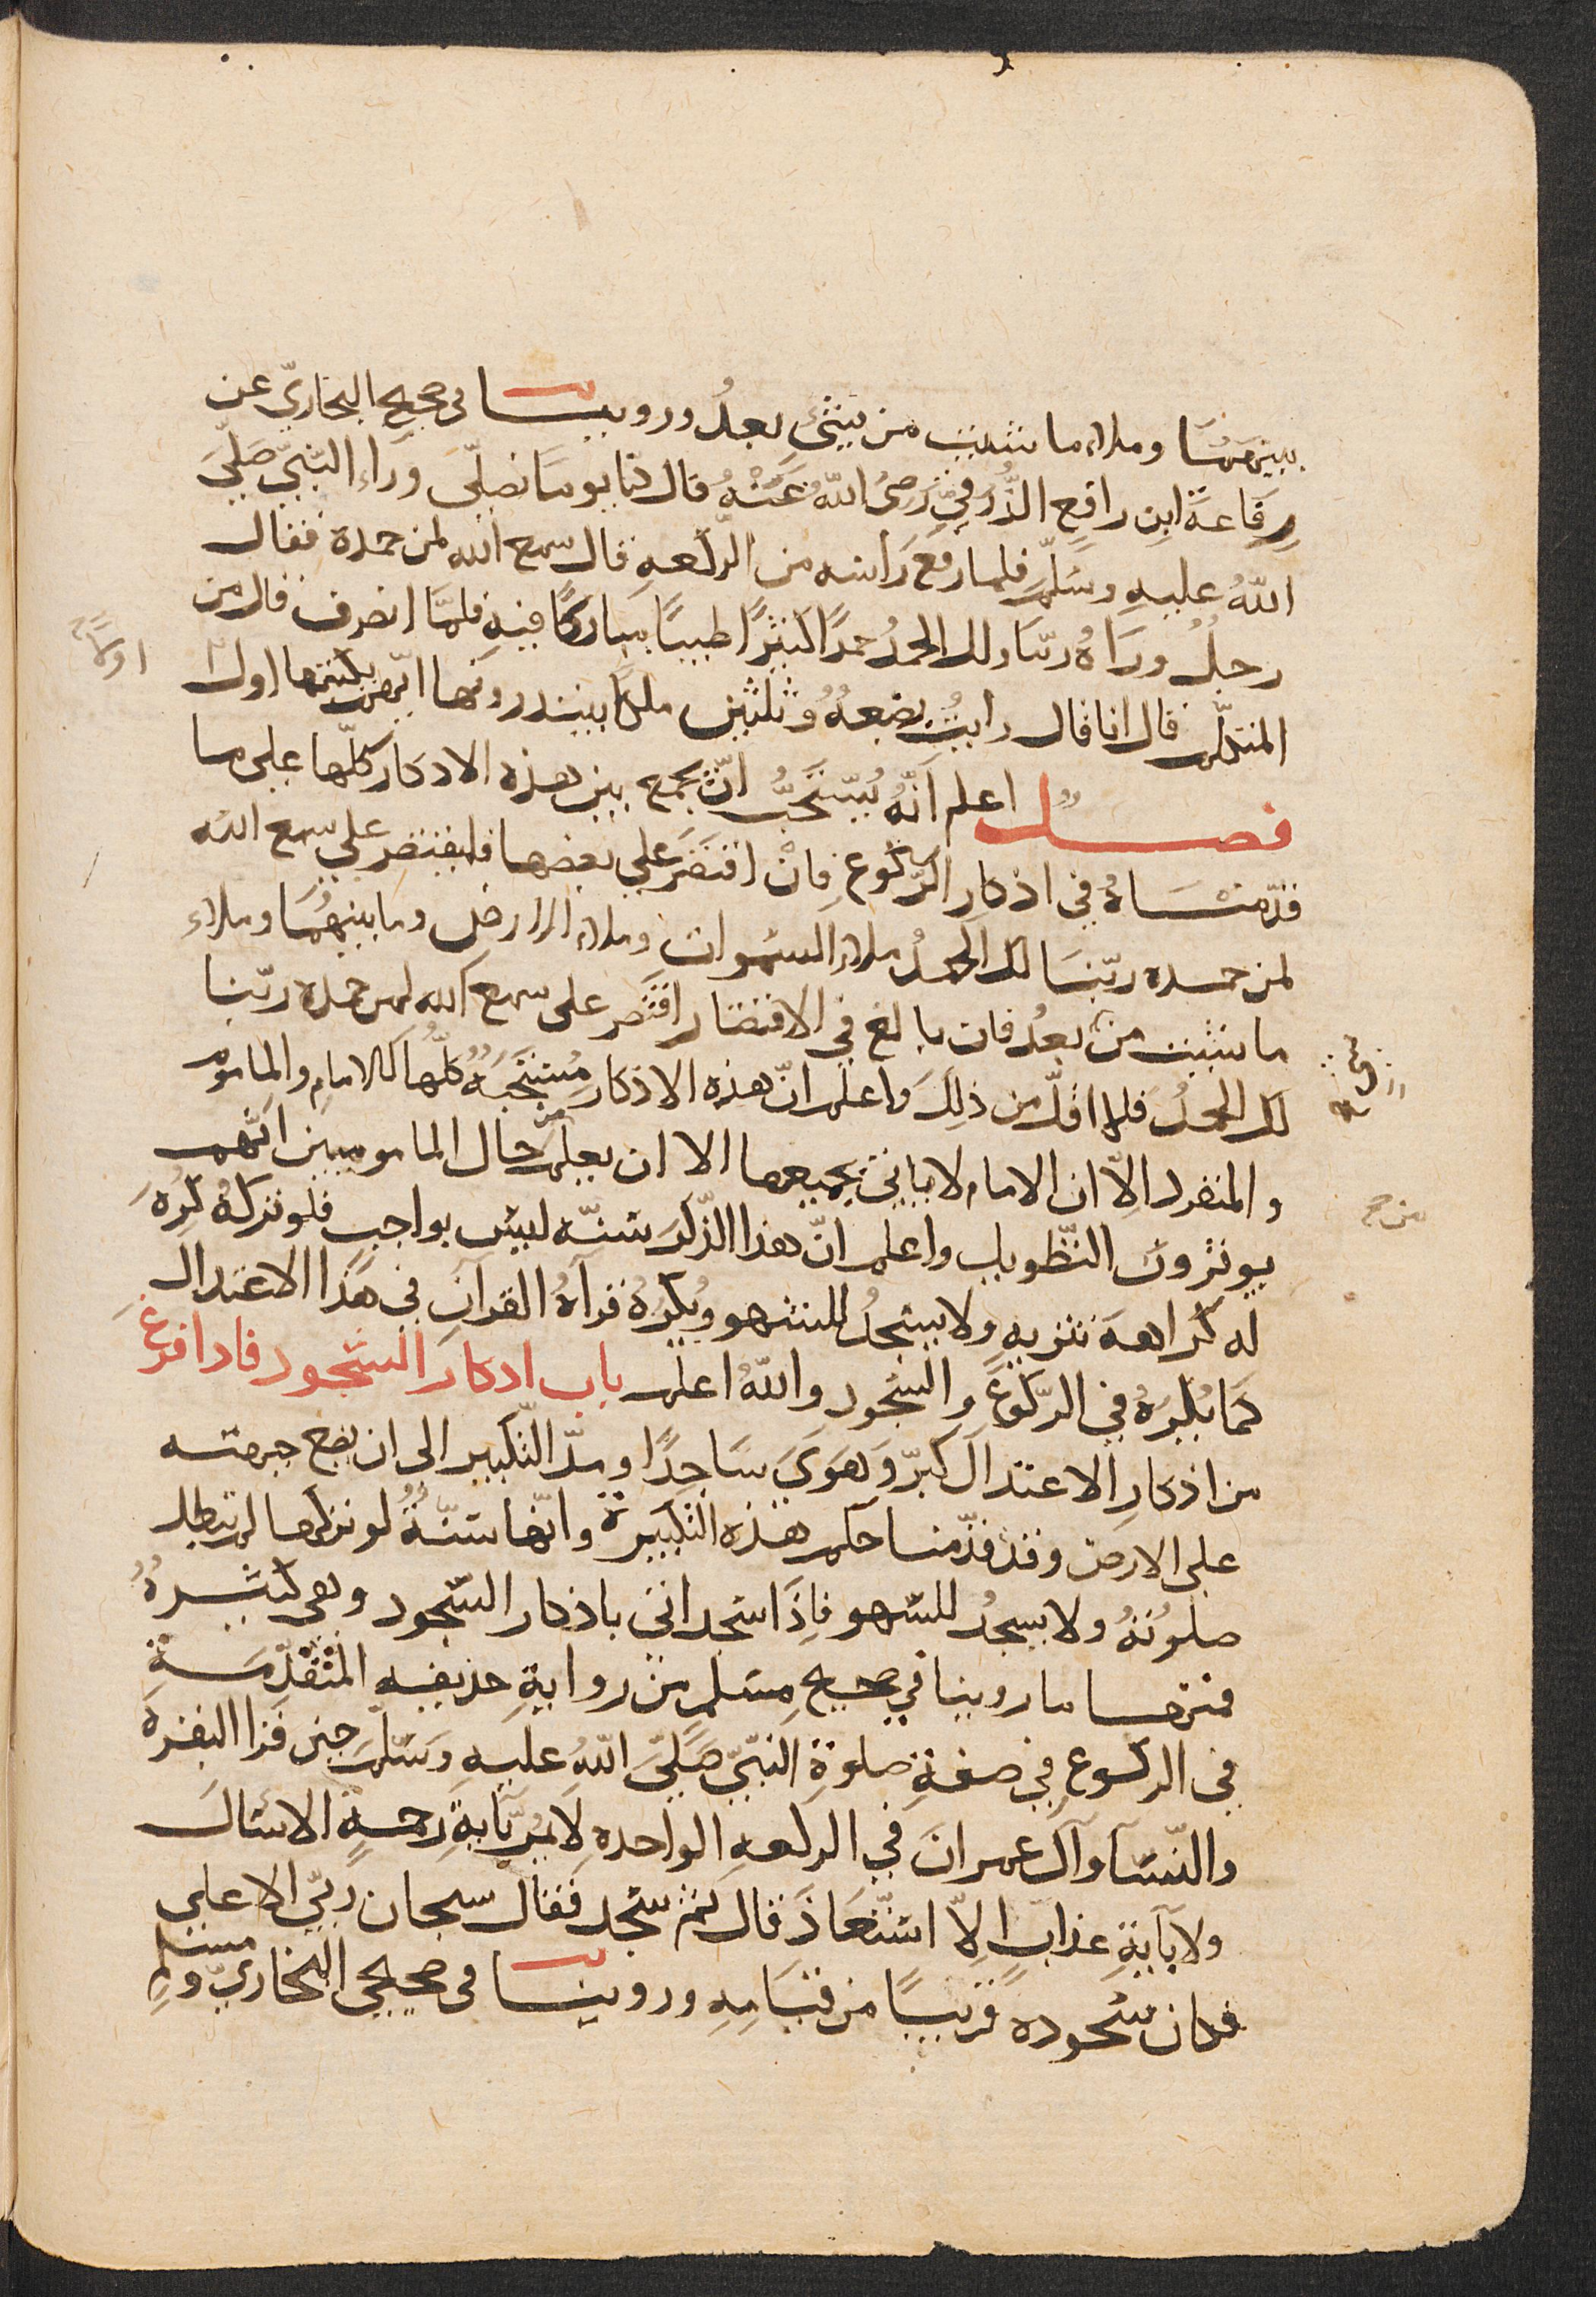 بينهمَا وملاء ما شئت من شئٍ بعدُ وروينا فى صحيح البخاريّ عن
رِفَاعةَ ابنِ رافعِ الزُّرَقيِّ رَضِىَ اللّهُ عَنْهُ قال كنا يومًا نصلّى وَرَاء النّبيّ صَلّىَ
اللّهُ عليهِ وسَلّمَ فلما رفع رَاسه من الركعهِ قال سمع الله لمن حمدة فقال
رجلٌ ورَاهُ ربّنا ولك الحمدُ حمدًا كثيرًا طيبًا مباركًا فيهِ فلمَّا انصرف قال من
المتكلّم قال انا قال رايتُ بضعهٌ وثلثين ملكًا يبتدرونها ايّهم يكتبها اول
اولاً
فصل اعلم اَنّهُ يُستَحَبُّ انّ يجمع بين هذه الاذكار كلّها على ما
قدّمنَاهُ في اذكار الرّكوع فانْ اقتَصَرَ علي بعضها فليقتصر علي سمع الله
لمن حمده ربّنَا لك الحمدُ ملاء السّموات وملاء الارض وما بينهُمَا وملاء
ما شئت من بعدُ فان بالغ في الاقتصار اقتَصَر على سمع الله لمن حمده ربّنا
لك الحمدُ فلا اقلّ من ذلِكَ واعلم انّ هذه الاذكار مُستحَبّهُ كلّها كالامامِ والماموم
والمنفرد اِلاّ ان الامام لا ياتي بجميعها الا ان يعلم من حال المامومين انّهم
يوثرون التّطويل واعلم انّ هذا الذّكرَ سنّه ليس بواجبٍ فلو تركهُ كُرِهَ
له كراهةَ تنزيهٍ ولا يسجدُ للسّهو ويُكرَهُ قرآةُ القرآنِ في هَذا الاعتدالِ
كمَا يُكرَهُ في الرّكوعِ والسّجودِ واللّهُ اعلم باب اذكار السّجود فاذا فرغ
من اذكارِ الاعتدال كبرّ وَهَوَىَ سَاجِدًا ومدّ التّكبير الى ان يضع جبهته
على الارض وقد قدّمنا حكم هذه التكبيرة وانّها سنّةٌ لو تركها لم تبطل
صلوتهُ ولا يسجدُ للسّهو فاِذَا سَجد اتى باذكار السّجود وهى كثيرهٌ
فمنها ما روينا في صحيحِ مسلمٍ من روايةِ حذيفه المتقدّمَةِ
في الركوع في صفةِ صلوةِ النبّيّ صَلّىَ اللّهُ عليهِ وسَلّمَ حين قرا البقرة
والنّسآ وآل عمرانَ في الركعهِ الواحدهِ لا يَمُرّ بآيةِ رحمةٍ الا سَال
ولا بآيةِ عذابٍ اِلاّ استَعَاذَ قال ثم سَجد فقال سبحان ربّي الاعلى
فكان سُجوده قريبًا من قيَامِهِ وروينا فى صحيحى البخاريّ ومسلم